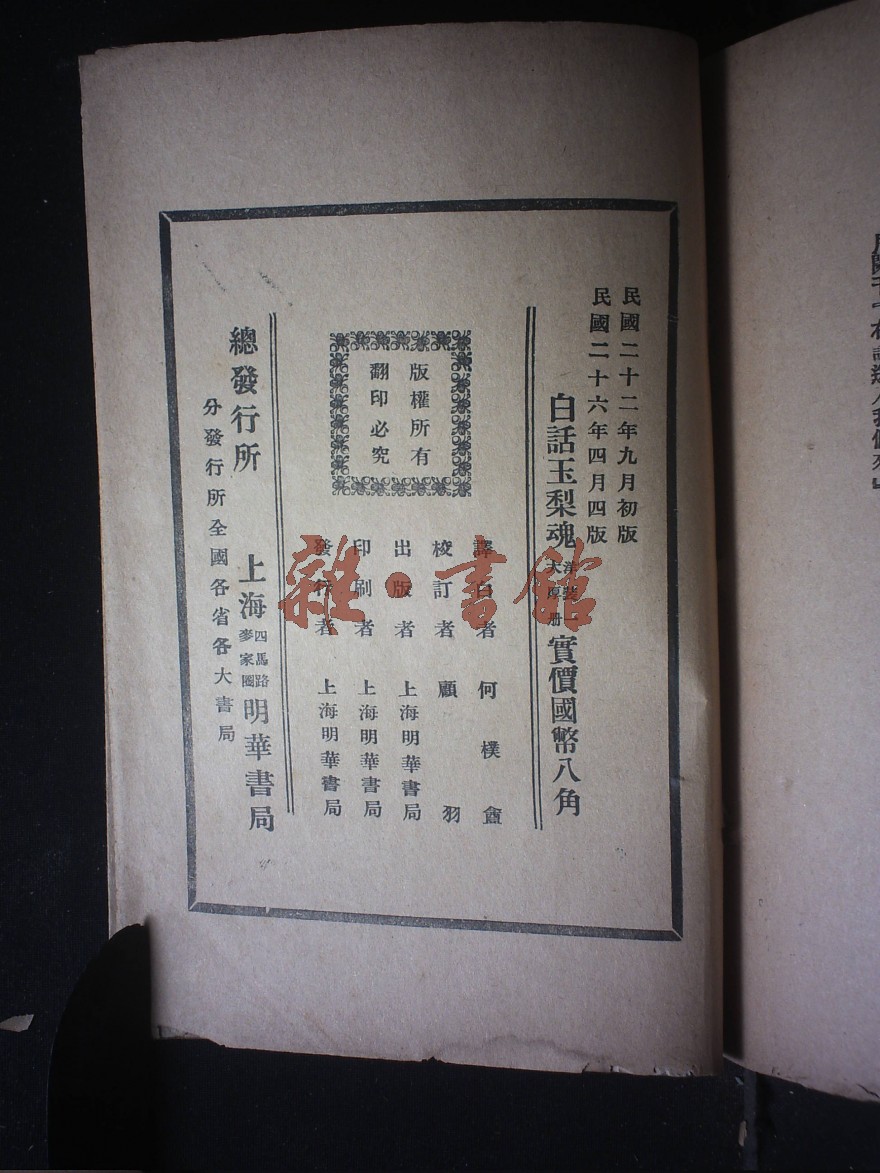 民國二十二年九月初版
民國二十六年四月四版
白話玉梨魂 洋裝一大厚册 實價國幣八角
譯白者 何樸盦
校訂者 顧羽
出版者 上海明華書局
印刷者 上海明華書局
發行者 上海明華書局
版權所有
翻印必究
總發行所 上海四馬路麥家圈明華書局
分發行所全國各省各大書局
雜·書館